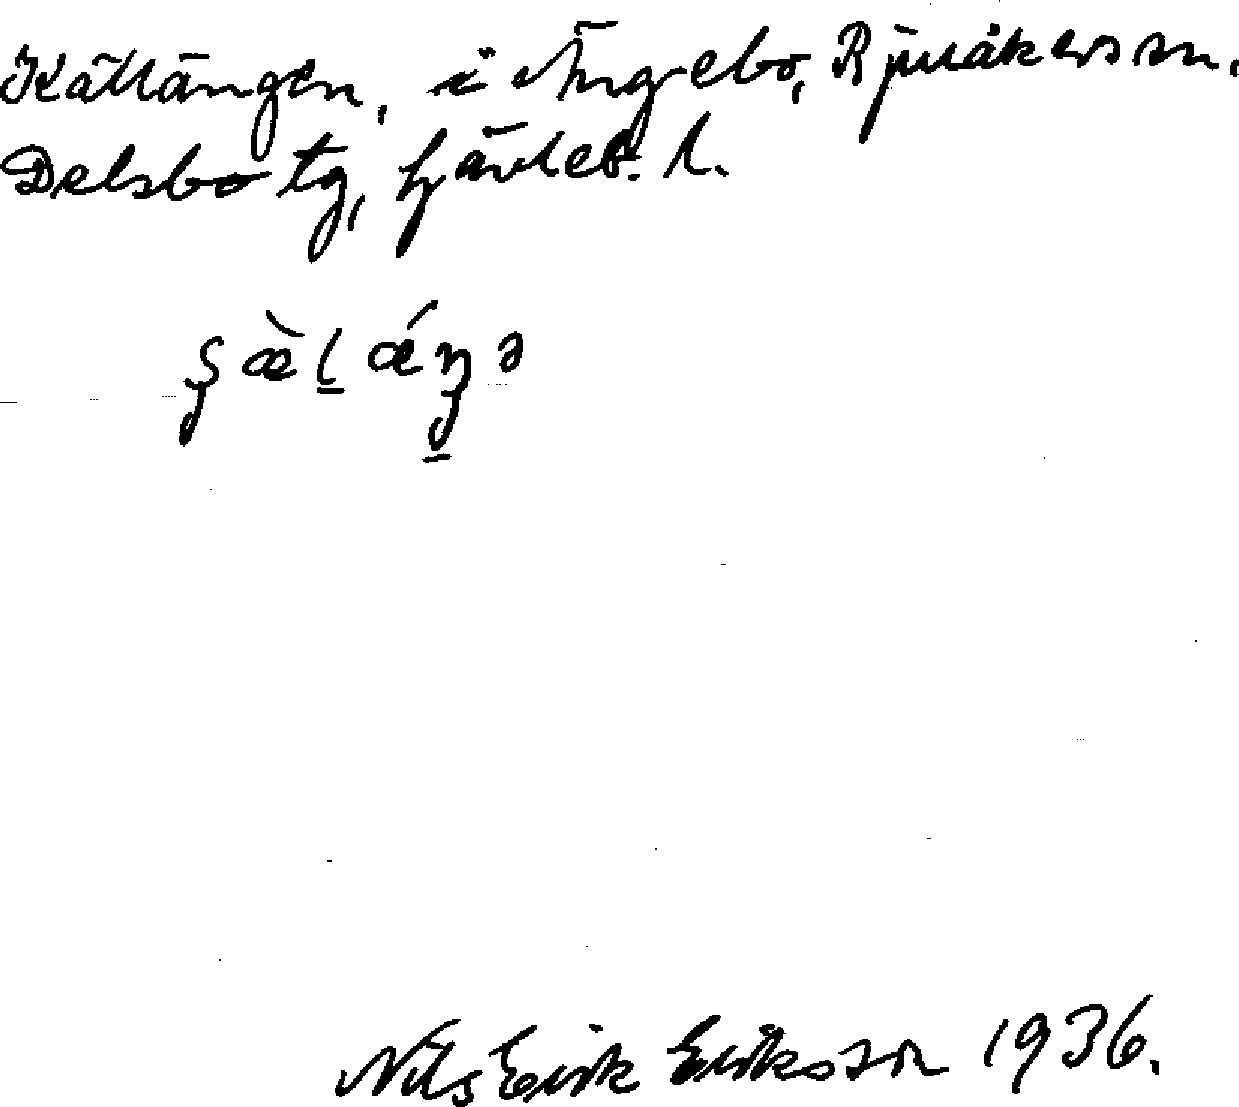 Källängen, i Ängebo, Bjuråkers sn.
Delsbo tg, Gävleb. l.
Nils Eirik Eriksson 1936.